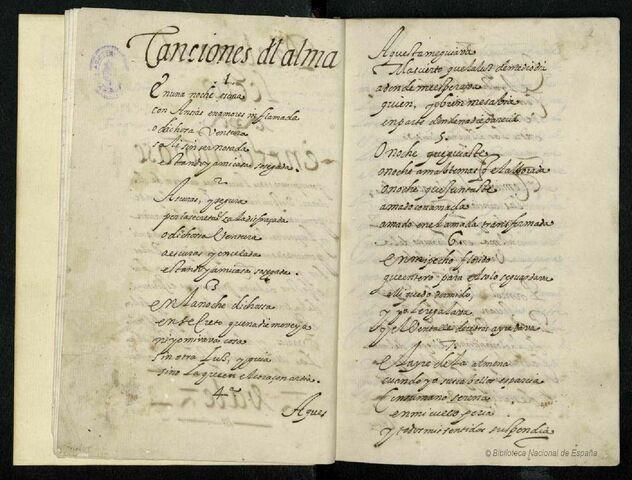 Canciones dl alma
1
En una noche escura
con Ansias en amores inflamada
o dichosa Ventura
sali sin ser notada
estando ya mi casa sosegada.
2
Ascuras, y segura
por la secreta escala disfraçada
o dichosa Ventura
a escuras y en celada
estando ya mi casa sosegada.
3
en la noche dichosa
en secreto que nadie me veya
ni yo mirava cosa
sin otra luz, y guia
sino la que en el coraçon ardia.
4
Aques
Aquesta me guiava
Mas cierto que la luz de medio dia
adonde me esperava
quien yo bien me sabia
en parte donde nadie parecia
5
O noche que guiaste
o noche amable mas q el alborada
o noche que juntaste
amado con amada
amada en el amado transformada
6
en mi pecho florido
que entero para el solo se guardava
alli quedo dormido,
y yo le regalava
y el Ventalle de cedros ayre dava
7
el ayre de la almena
cuando yo sus cabellos esparcia
con su mano serena
en mi cuello heria
y todos mis sentidos suspendia
© Biblioteca Nacional de España